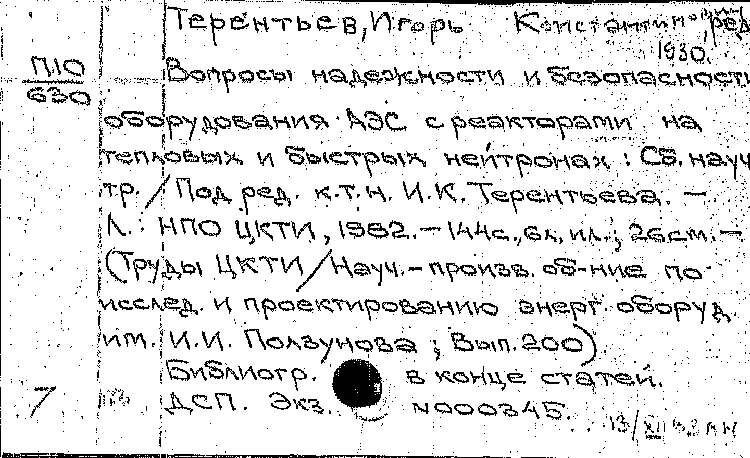 Терентьев, Игорь Константинович, ред.
1930.
П10
630
Вопросы надежности и безопасности
оборудования АЭС с реакторами на
тепловых и быстрых нейтронах : Сб. науч.
тр. / Под ред. к.т.н. И.К. Терентьева. —
Л. : НПО ЦКТИ, 1982. — 144с., ил.; 26см. —
(Труды ЦКТИ / Науч.-произв. об-ние по
исслед. и проектированию энерг. оборуд.
им. И.И. Ползунова ; Вып. 200).
Библиогр. в конце статей.
7 ДСП. Экз. №000345.
13/XII